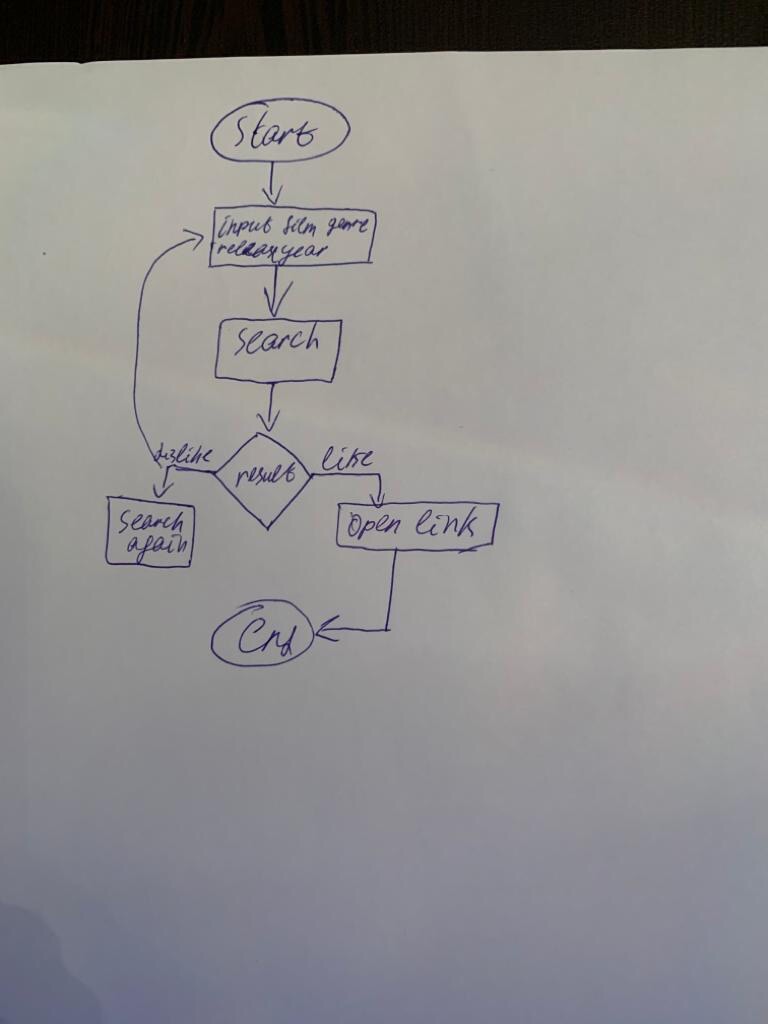 Start
input film genre
release year
Search
dislike
result
like
Search
again
Open link
End